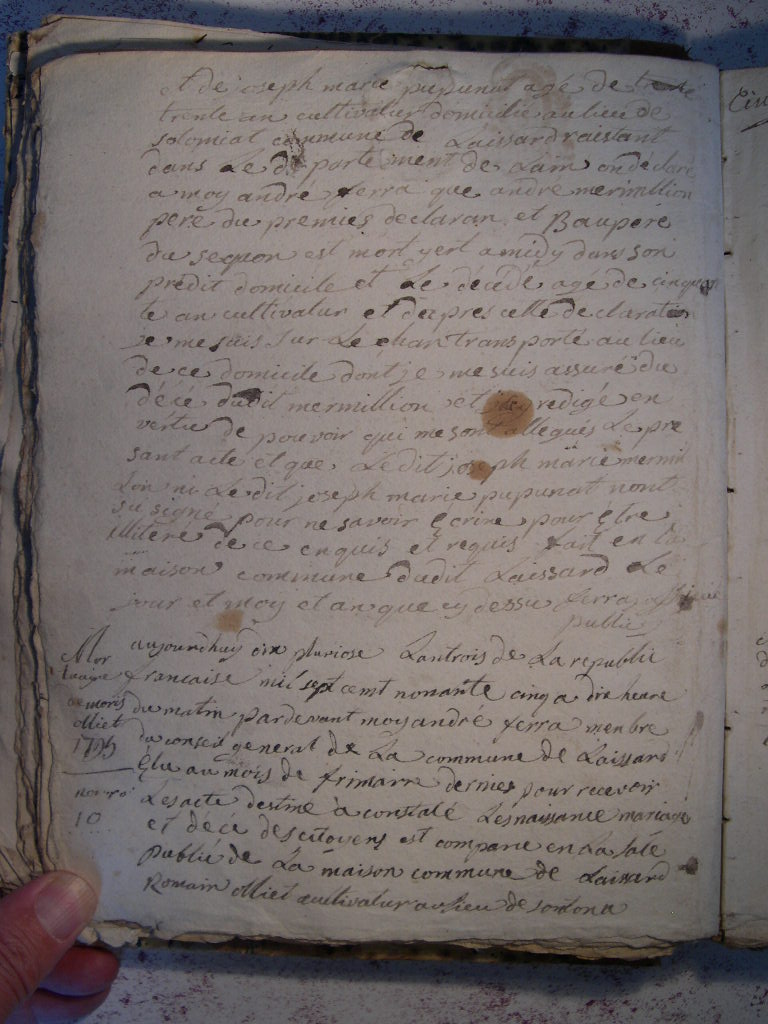 et de joseph marie pupunat agé de trente
trente an cultivatur domicilié au lieu de
solomiat commune de Laissard raistant
dans Le departement de Lain on declare
a moy andré ferra que andre mermillion
pere du premies declaran et Baupere
du segon est mort yert a midy dans son
predit domicile et Le décédé agé de cinquan
te an cultivatur et daprés celle declaration
je me suis sur Le chan transporté au lieu
de ce domicile dont je me suis assuré du
décé dudit mermillion et jdey redigé en
vertu de pouvoir qui me sont allegués Le pre
sant acte et que Ledit joseph marie mermil
lion ni Le dit joseph marie pupunat nont
su signé pour ne savoir Ecrire pour Etre
illiteré de ce enquis et requis fait en la
maison commune dudit Laissard Le
jour et moy et an que cy dessu ferra officié
public
aujourdhuy dix pluviose Lantrois de La republic
francaise mil sept cent nonante cinq a dix heure
du matin pardevant moy andré ferra menbre
du conseil general de La commune de Laissard
Elu au mois de frimarre dernies pour recevoir
Les acte destiné à constaté Les naissance mariage
et décé des citoyens est comparu en La sale
public de La maison commune de Laissard
Romain olliet cultivatur au lieu de
Mor
olliet
1795
10